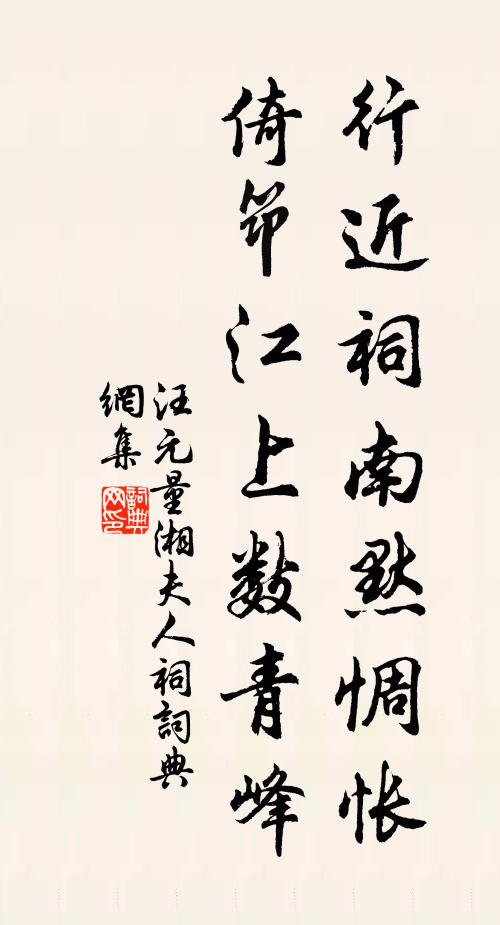 行近祠南黙惆怅
倚笻江上数青峰
汪元量湘夫人祠詞典
網集
詞典
网印